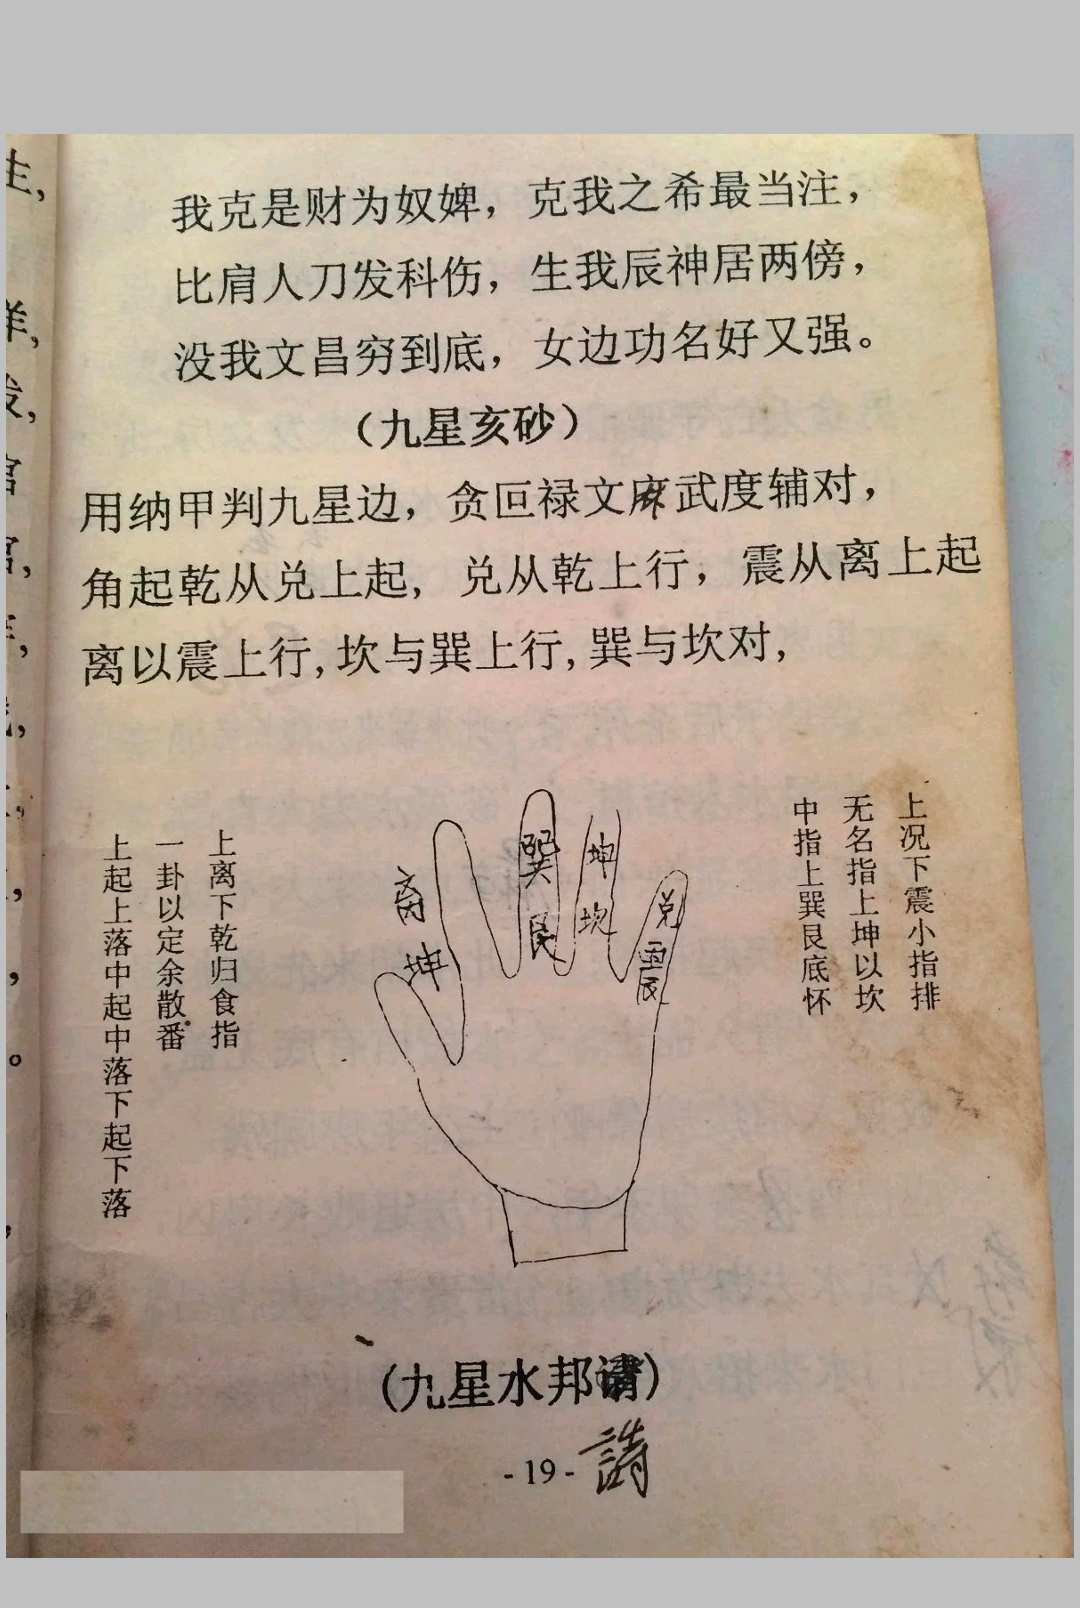 我克是财为奴婢，克我之希最当注，
比肩人刀发科伤，生我辰神居两傍，
没我文昌穷到底，女边功名好又强。
（九星亥砂）
用纳甲判九星边，贪叵禄文麻武度辅对，
角起乾从兑上起，兑从乾上行，震从离上起
离以震上行,坎与巽上行,巽与坎对,
上况下震小指排
无名指上坤以坎
中指上巽艮底怀
上离下乾归食指
一卦以定余散番
上起上落中起中落下起下落
离
坤
巽
艮
坤
坎
兑
震
（九星水邦请）
-19-
請